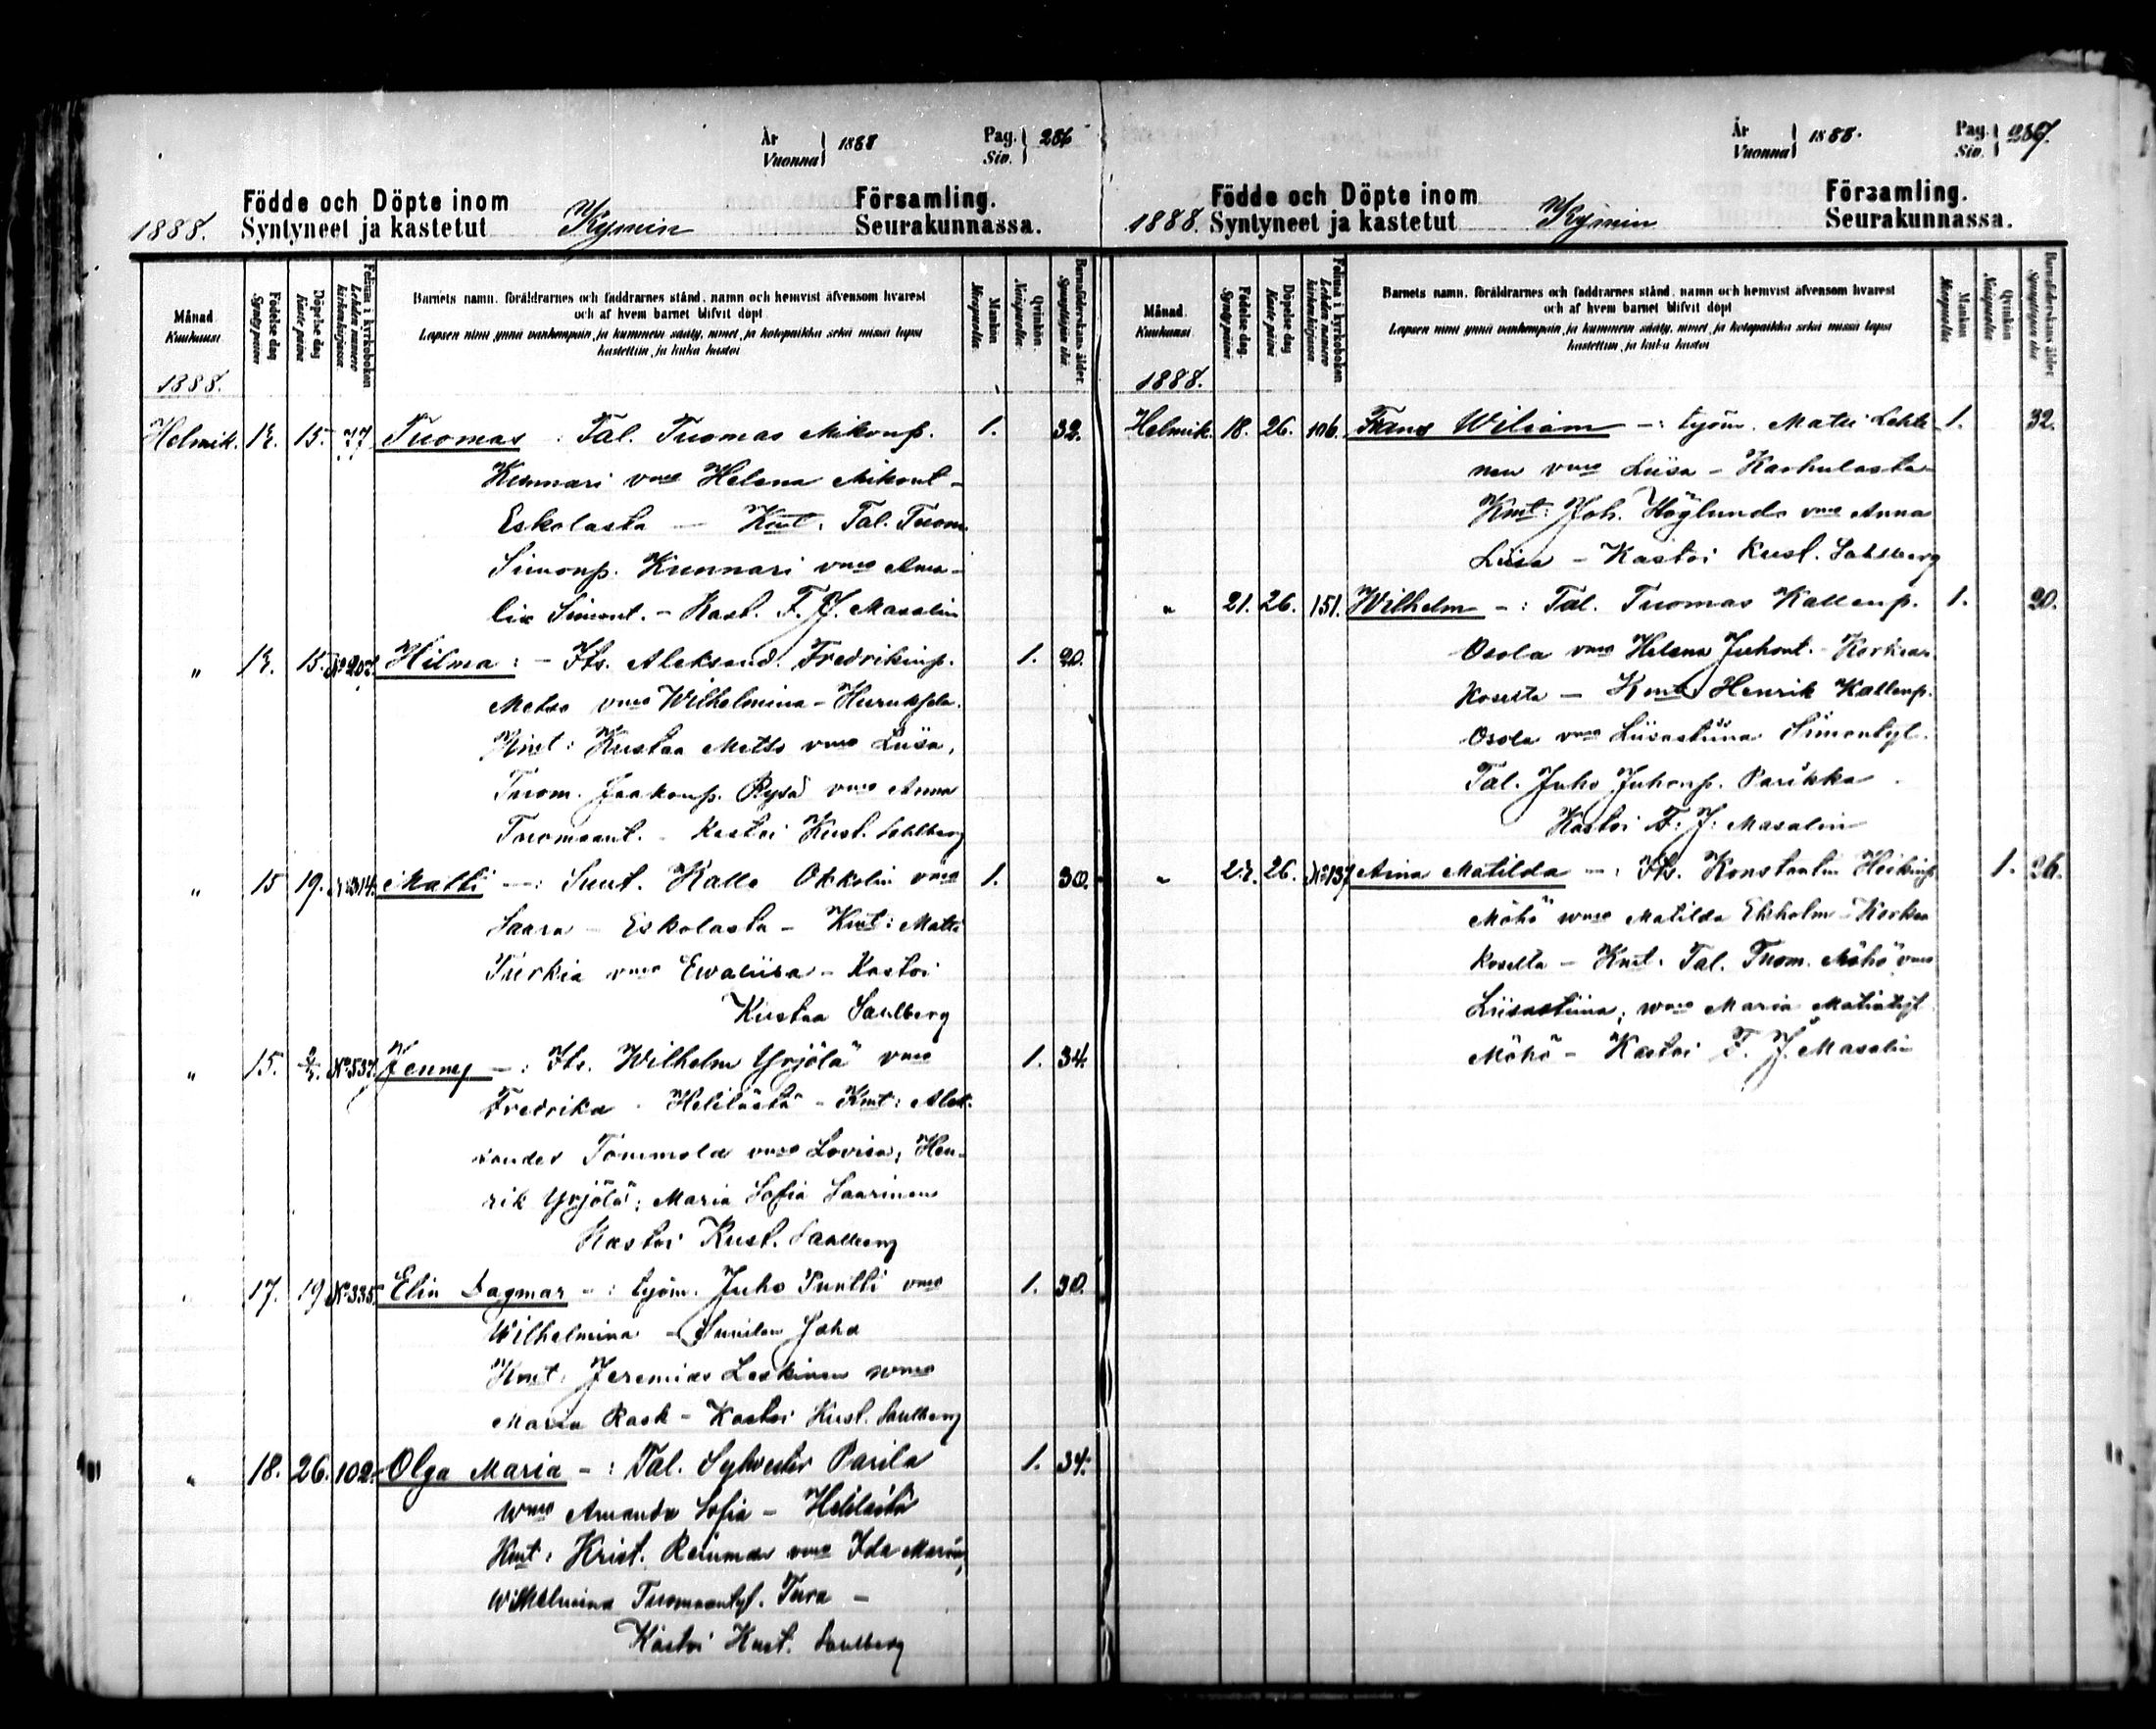 År
Vuonna } 1888
Pag.
Siv. } 286
Födde och Döpte inom
Församling.
1888. Syntyneet ja kastetut Kymin Seurakunnassa.
Månad.
Kuukausi
Födelse dag
Syntypäivä
Döpelse dag
Kaste päivä
Folium i kyrkoboken
Lehden numero kirkonkirjassa
Barnets namn, föräldrarnes och faddrarnes stånd, namn och hemvist äfvensom hvarest
och af hvem barnet blifvit döpt
Lapsen nimi ynnä vanhempain ja kummein sääty, nimet ja kotopaikka sekä missä lapsi
kastettiin ja kuka kastoi
Mankön
Miespuolta.
Qvinkön.
Naispuolta.
Barnaföderskans ålder.
Synnyttäjän ikä.
1888.
Helmik. 12. 15. 77 Tuomas : Tal. Tuomas Mikonp. 1. 32.
Kunnari vmo Helena Mikont-
Eskolasta — Kmt: Tal. Tuom.
Simonp. Kunnari vmo Ama-
lia Simont. - Kast. F. J. Masalin
" 12. 15. No 207. Hilma : - Its. Aleksand. Fredrikinp. 1. 20.
Metso vmo Wilhelmina - Huruksela.
Kmt: Kustaa Metso vmo Liisa,
Tuom. Jaakonp. Rysä vmo Anna
Tuomaant. - Kastoi Kust. Sahlberg
" 15 19. No 314. Matti —: Suut. Kalle Okkolin vmo 1. 30.
Saara - Eskolasta - Kmt: Matti
Turkia vmo Ewaliisa - Kastoi
Kustaa Sahlberg
" 15. No 537. Jenny —: Its. Wilhelm Yrjölä vmo 1. 34.
Fredrika - HeliläStä - Kmt: Alek-
sander Tommola vmo Lovisa, Hen-
rik Yrjölä; Maria Sofia Saarinen
Kastoi Kust. Sahlberg
" 17. 19 No 335. Elin Dagmar -: työm. Juho Puntti vmo 1. 30.
Wilhelmina - Sunilan Saha
Kmt: Jeremias Leskinen vmo
Maria Rask - Kastoi Kust. Sahlberg
" 18. 26. 102. Olga Maria -: Tal. Sylvester Parila 1. 34.
wmo Amanda Sofia - Heliläistä
Kmt: Krist. Reinman vmo Ida Maria,
Wilhelmina Tuomaantyt. Tura -
Kastoi Kust. Sahlberg
År
Vuonna } 1888.
Pag.
Siv. } 287.
Födde och Döpte inom
Församling.
1888. Syntyneet ja kastetut Kymin Seurakunnassa.
Månad.
Kuukausi.
Födelse dag.
Syntypäivä
Döpelse dag
Kaste päivä
Folium i kyrkoboken
Lehden numero kirkonkirjassa
Barnets namn, föräldrarnes och faddrarnes stånd, namn och hemvist äfvensom hvarest
och af hvem barnet blifvit döpt
Lapsen nimi ynnä vanhempain ja kummein sääty, nimet ja kotopaikka sekä missä lapsi
kastettiin ja kuka kastoi
Mankön
Miespuolta
Qvinkön
Naispuolta
Barnaföderskans ålder
Synnyttäjän ikä
1888.
Helmik. 18. 26. 106. Frans Wiliam -: työm. Matti Lehti- 1. 32.
nen vmo Liisa - Karhulasta
Kmt: Joh. Höglund vmo Anna
Liisa - Kastoi Kust. Sahlberg
" 21. 26. 151. Wilhelm -: Tal. Tuomas Kallenp. 1. 20.
Osola vmo Helena Juhont. - Korkea-
koselta - Kmt: Henrik Kallenp.
Osola vmo Liisastiina Simontyt.
Tal. Juho Juhonp. Parikka.
Kastoi F. J. Masalin
" 22. 26. No 137 Aina Matilda -: Its. Konstantin Heikinp. 1. 26.
Möhö wmo Matilda Ekholm - Korkea
koselta - Kmt: Tal. Tuom. Möhö vmo
Liisastiina; wmo Maria Matintyt
Möhö - Kastoi F. J. Masalin